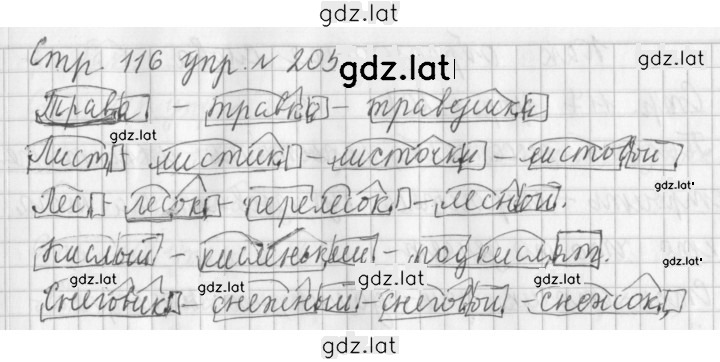 gdz.lat
Стр. 116 упр. № 203
gdz.lat
Трава - травка - травушка
gdz.lat
Лист - листик - листочки - листовой,
gdz.lat
Лес - лесок - перелесок - лесной.
gdz.lat
Кислый - кисленький - подкислят.
gdz.lat
gdz.lat
Снеговик - снежный - снеговой - снежок,
gdz.lat
gdz.lat
gdz.lat
gdz.lat